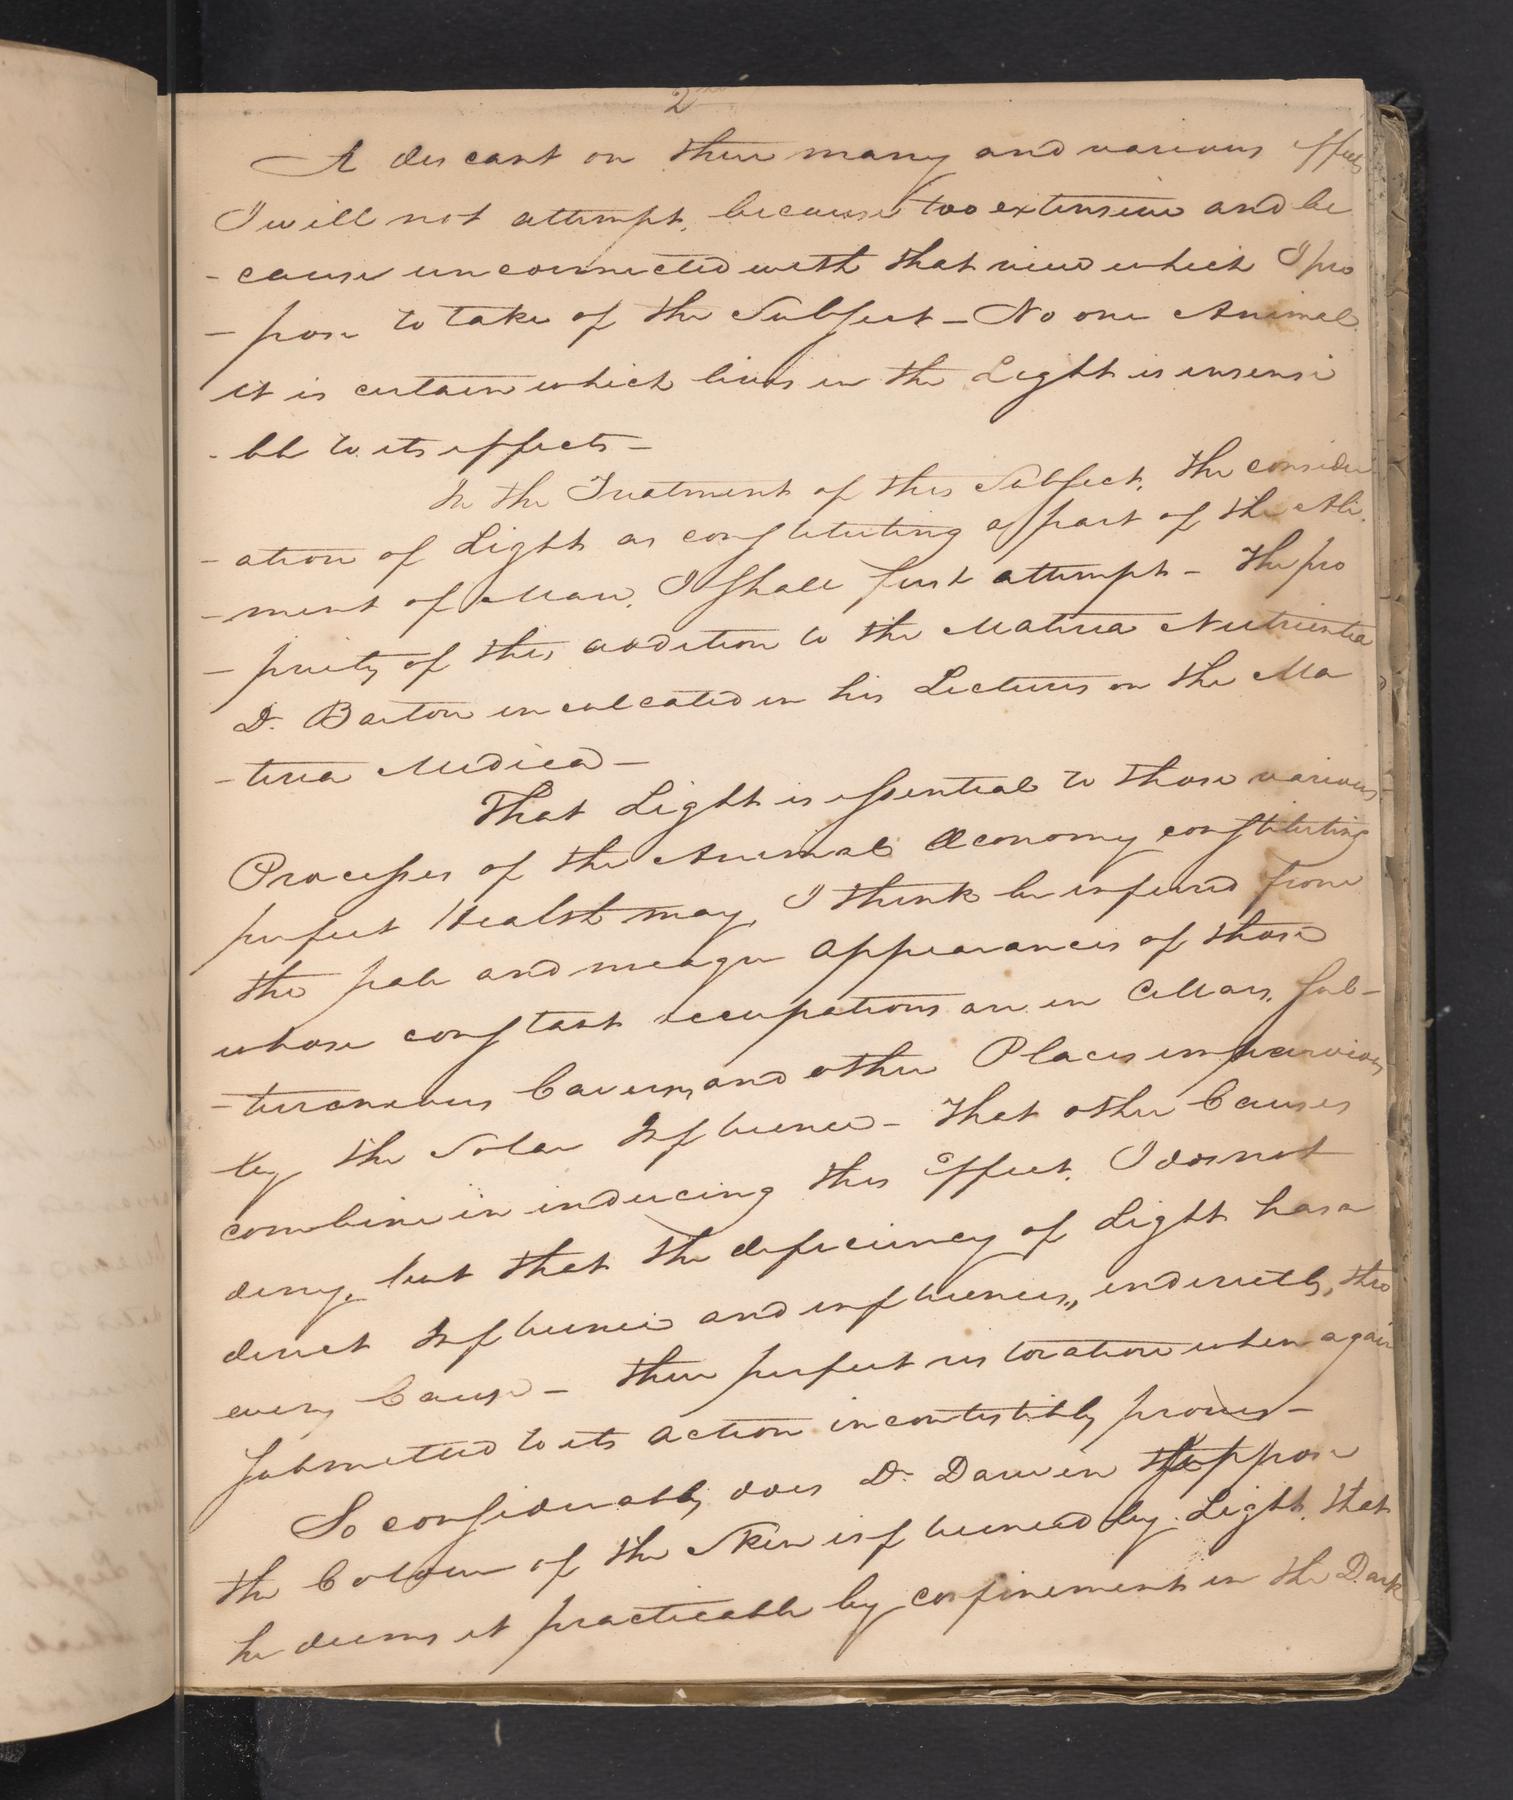 2
A descant on their many and various effects
I will not attempt, because too extensive and be
- cause unconnected with that view which I pro
- pose to take of the Subject - No one Animal
it is certain which lives in the Light is insensi
- ble to its effects -
In the Treatment of this Subject, the consider
- ation of Light as constituting a part of the Ali
- ment of Man, I shall first attempt - The pro
- priety of this addition to the Materia Nutrientia
Dr. Barton inculcated in his Lectures on the Ma
- teria Medica -
That Light is essential to those various
Processes of the Animal Œconomy constituting
perfect Health may, I think be inferred from
the pale and meagre appearances of those
whose constant occupations are in Cellars, sub-
- terraneous Caverns and other Places impervious
by the Solar Influence - That other Causes
combine in inducing this Effect, I do not
deny, but that the deficiency of Light has a
direct Influence and influences, indirectly, thro
every Cause - their perfect restoration when again
submitted to its action incontestibly proves -
So considerably does Dr. Darwin suppose
the Colour of the Skin influenced by Light, that
he deems it practicable by confinement in the Dark